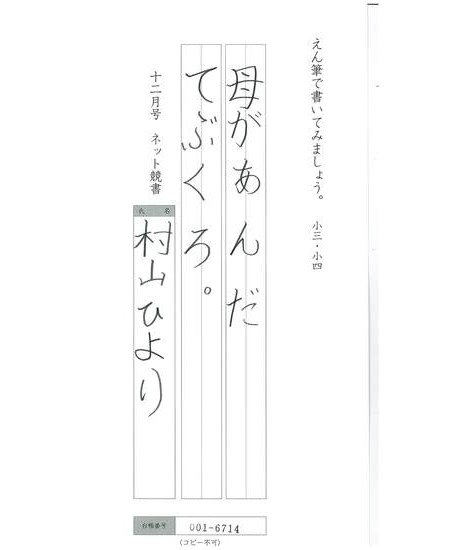 えん筆で書いてみましょう。 小三・小四
母があんだ
てぶくろ。
十二月号 ネット競書
氏 名
村山ひより
台帳番号 001-6714
(コピー不可)